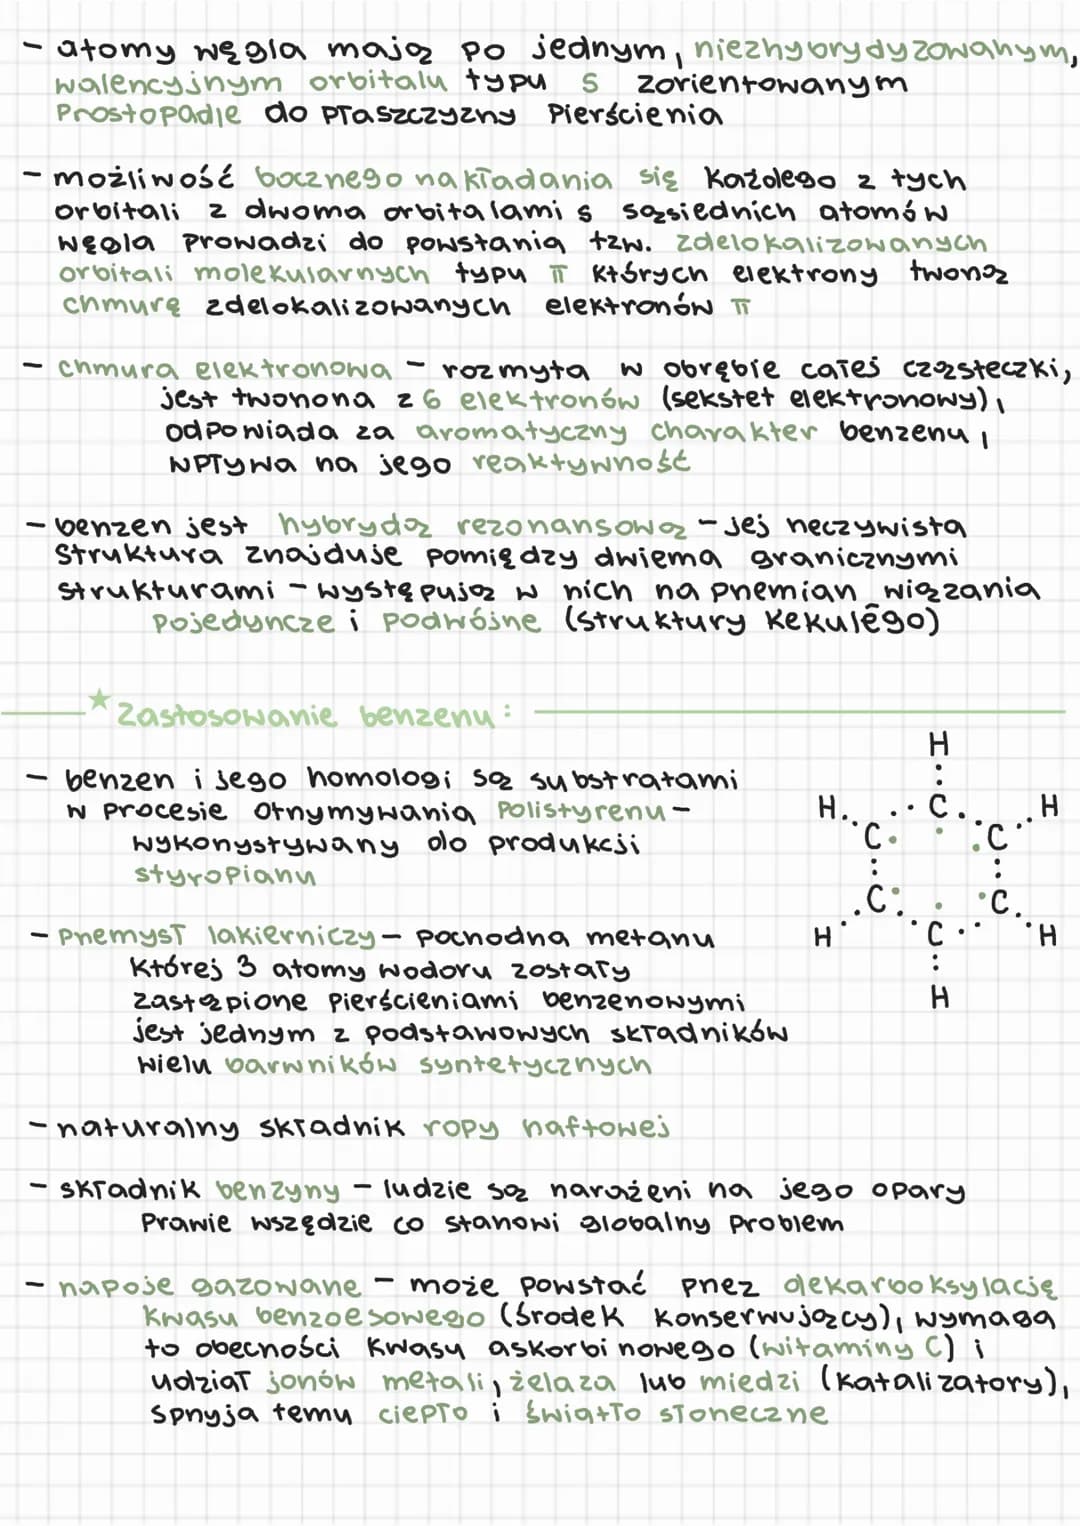 - atomy węgla mają po jednym, niezhybrydyzowanym,
walencyjnym orbitalu typu s zorientowanym
prostopadle do płaszczyzny pierścienia
- możliwość bocznego nakładania się każdego z tych
orbitali z dwoma orbitalami s sąsiednich atomów
węgla prowadzi do powstania tzw. zdelokalizowanych
orbitali molekularnych typu π których elektrony tworzą
chmurę zdelokalizowanych elektronów π
- chmura elektronowa - rozmyta w obrębie całej cząsteczki,
jest tworzona z 6 elektronów (sekstet elektronowy),
odpowiada za aromatyczny charakter benzenu,
wpływa na jego reaktywność
- benzen jest hybrydą rezonansową - jej rzeczywista
struktura znajduje pomiędzy dwiema granicznymi
strukturami - występują w nich na przemian wiązania
pojedyncze i podwójne (struktury Kekulēgo)
★ Zastosowanie benzenu:
- benzen i jego homologi są substratami
w procesie otrzymywania polistyrenu -
wykorzystywany do produkcji
styropianu
- przemysł lakierniczy - pochodna metanu
której 3 atomy wodoru zostały
zastąpione pierścieniami benzenowymi
jest jednym z podstawowych składników
wielu barwników syntetycznych
H
H C H
C C
C C
H C H
H
- naturalny składnik ropy naftowej
- składnik benzyny - ludzie są narażeni na jego opary
prawie wszędzie co stanowi globalny problem
- napoje gazowane - może powstać przez dekarboksylację
kwasu benzoesowego (środek konserwujący), wymaga
to obecności kwasu askorbinowego (witaminy C) i
udział jonów metali, żelaza lub miedzi (katalizatory),
sprzyja temu ciepło i światło słoneczne